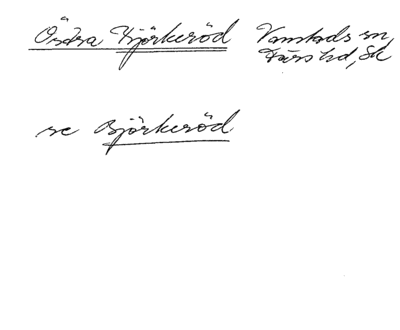 Östra Björkeröd Vamlads sn,
Färs hd, Sk
se Björkeröd